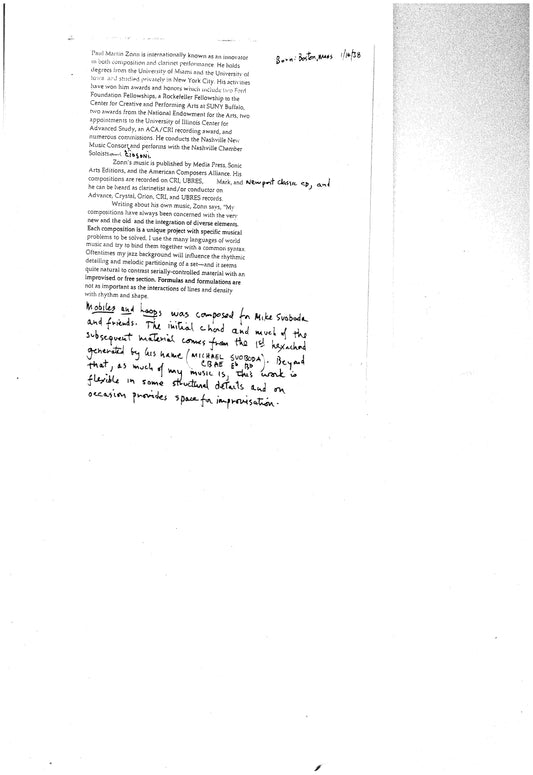 Born: Boston, Mass 1/16/38
Paul Martin Zonn is internationally known as an innovator
in both composition and clarinet performance. He holds
degrees from the University of Miami and the University of
Iowa, and studied privately in New York City. His activities
have won him awards and honors which include two Ford
Foundation Fellowships, a Rockefeller Fellowship to the
Center for Creative and Performing Arts at SUNY Buffalo,
two awards from the National Endowment for the Arts, two
appointments to the University of Illinois Center for
Advanced Study, an ACA/CRI recording award, and
numerous commissions. He conducts the Nashville New
Music Consort and performs with the Nashville Chamber
Soloists and
Zonn's music is published by Media Press, Sonic
Arts Editions, and the American Composers Alliance. His
compositions are recorded on CRI, UBRES, Mark, and Newport Classic CD, and
he can be heard as clarinetist and/or conductor on
Advance, Crystal, Orion, CRI, and UBRES records.
Writing about his own music, Zonn says, "My
compositions have always been concerned with the very
new and the old and the integration of diverse elements.
Each composition is a unique project with specific musical
problems to be solved. I use the many languages of world
music and try to bind them together with a common syntax.
Oftentimes my jazz background will influence the rhythmic
detailing and melodic partitioning of a set—and it seems
quite natural to contrast serially-controlled material with an
improvised or free section. Formulas and formulations are
not as important as the interactions of lines and density
with rhythm and shape.
Mobiles and hoops was composed for Mike Svoboda
and friends. The initial chord and much of the
subsequent material comes from the 1st hexachord
generated by his name (MICHAEL SVOBODA). Beyond
CBAE Eb BD
that, as much of my music is, this work is
flexible in some structural details and on
occasion provides space for improvisation.